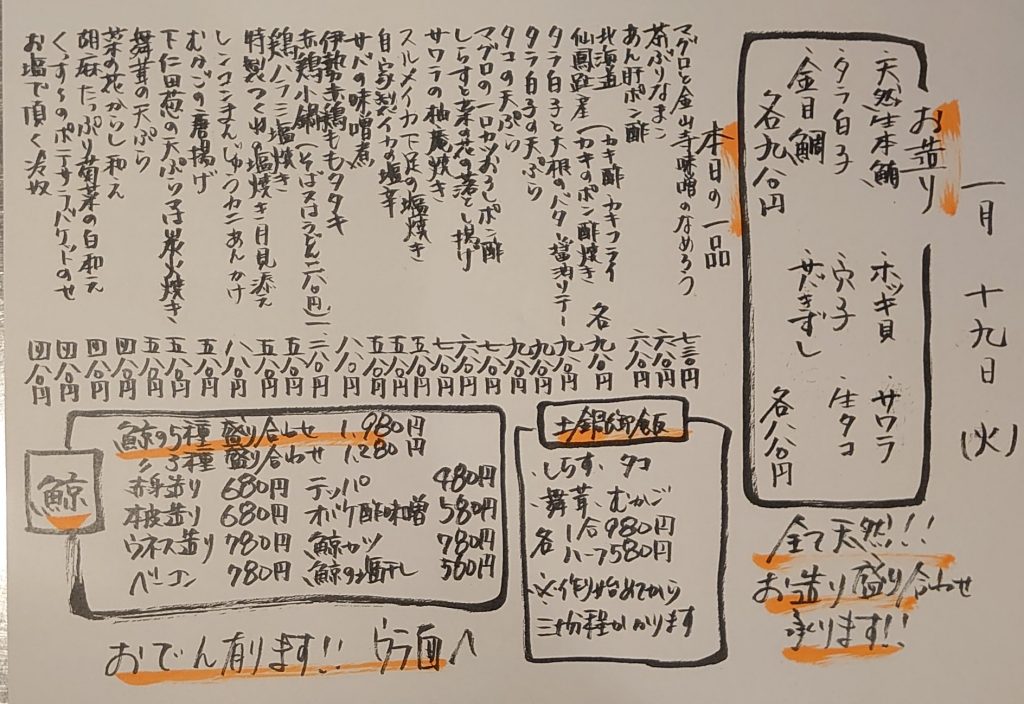 一月十九日(火)
お造り
・天然生本鮪
・タラ白子
・金目鯛
各九八〇円
・ホッキ貝
・穴子
・〆さきずし
・サワラ
・生タコ
各八八〇円
全て天然!!!
お造り盛り合わせ
承ります!!
本日の一品
マグロと金山寺味噌のなめろう 七三〇円
茶ぶりなまこ 六八〇円
あん肝ポン酢 六八〇円
北海道
仙鳳趾産(カキ酢・カキフライ
カキのポン酢焼き 各九八〇円
タラ白子と大根のバター醤油ソテー 九八〇円
タラ白子の天ぷら 九八〇円
タコの天ぷら 九八〇円
マグロの一口カツおろしポン酢 七八〇円
しらすと菜の花の落とし揚げ 六八〇円
サワラの柚庵焼き 七八〇円
スルメイカ下足の塩焼き 五八〇円
自家製イカの塩辛 五八〇円
サバの味噌煮 八八〇円
伊勢赤鶏ももタタキ 八八〇円
赤鶏小鍋(そば又はうどん二八〇円) 一二八〇円
鶏ハラミ塩焼き 五八〇円
特製つくね塩焼き月見添え 五八〇円
レンコンまんじゅうカニあんかけ 八八〇円
むかごの唐揚げ 五八〇円
下仁田葱の天ぷら又は炭火焼き 五八〇円
舞茸の天ぷら 五八〇円
菜の花からし和え 四八〇円
胡麻たっぷり菊菜の白和え 四八〇円
くんたまのポテサラバケットのせ 四八〇円
お塩で頂く冷奴 四八〇円
土鍋御飯
・しらす・タコ
・舞茸・むかご
各1合980円
ハーフ580円
※作り始めてから
三十分程かかります
鯨
鯨の5種盛り合わせ 1,980円
〃3種盛り合わせ 1,280円
赤身造り 680円
本皮造り 680円
ウネス造り 780円
ベーコン 780円
テッパ 480円
オバケ酢味噌 580円
鯨カツ 780円
鯨の塩干し 560円
おでん有ります!! ウラ面へ